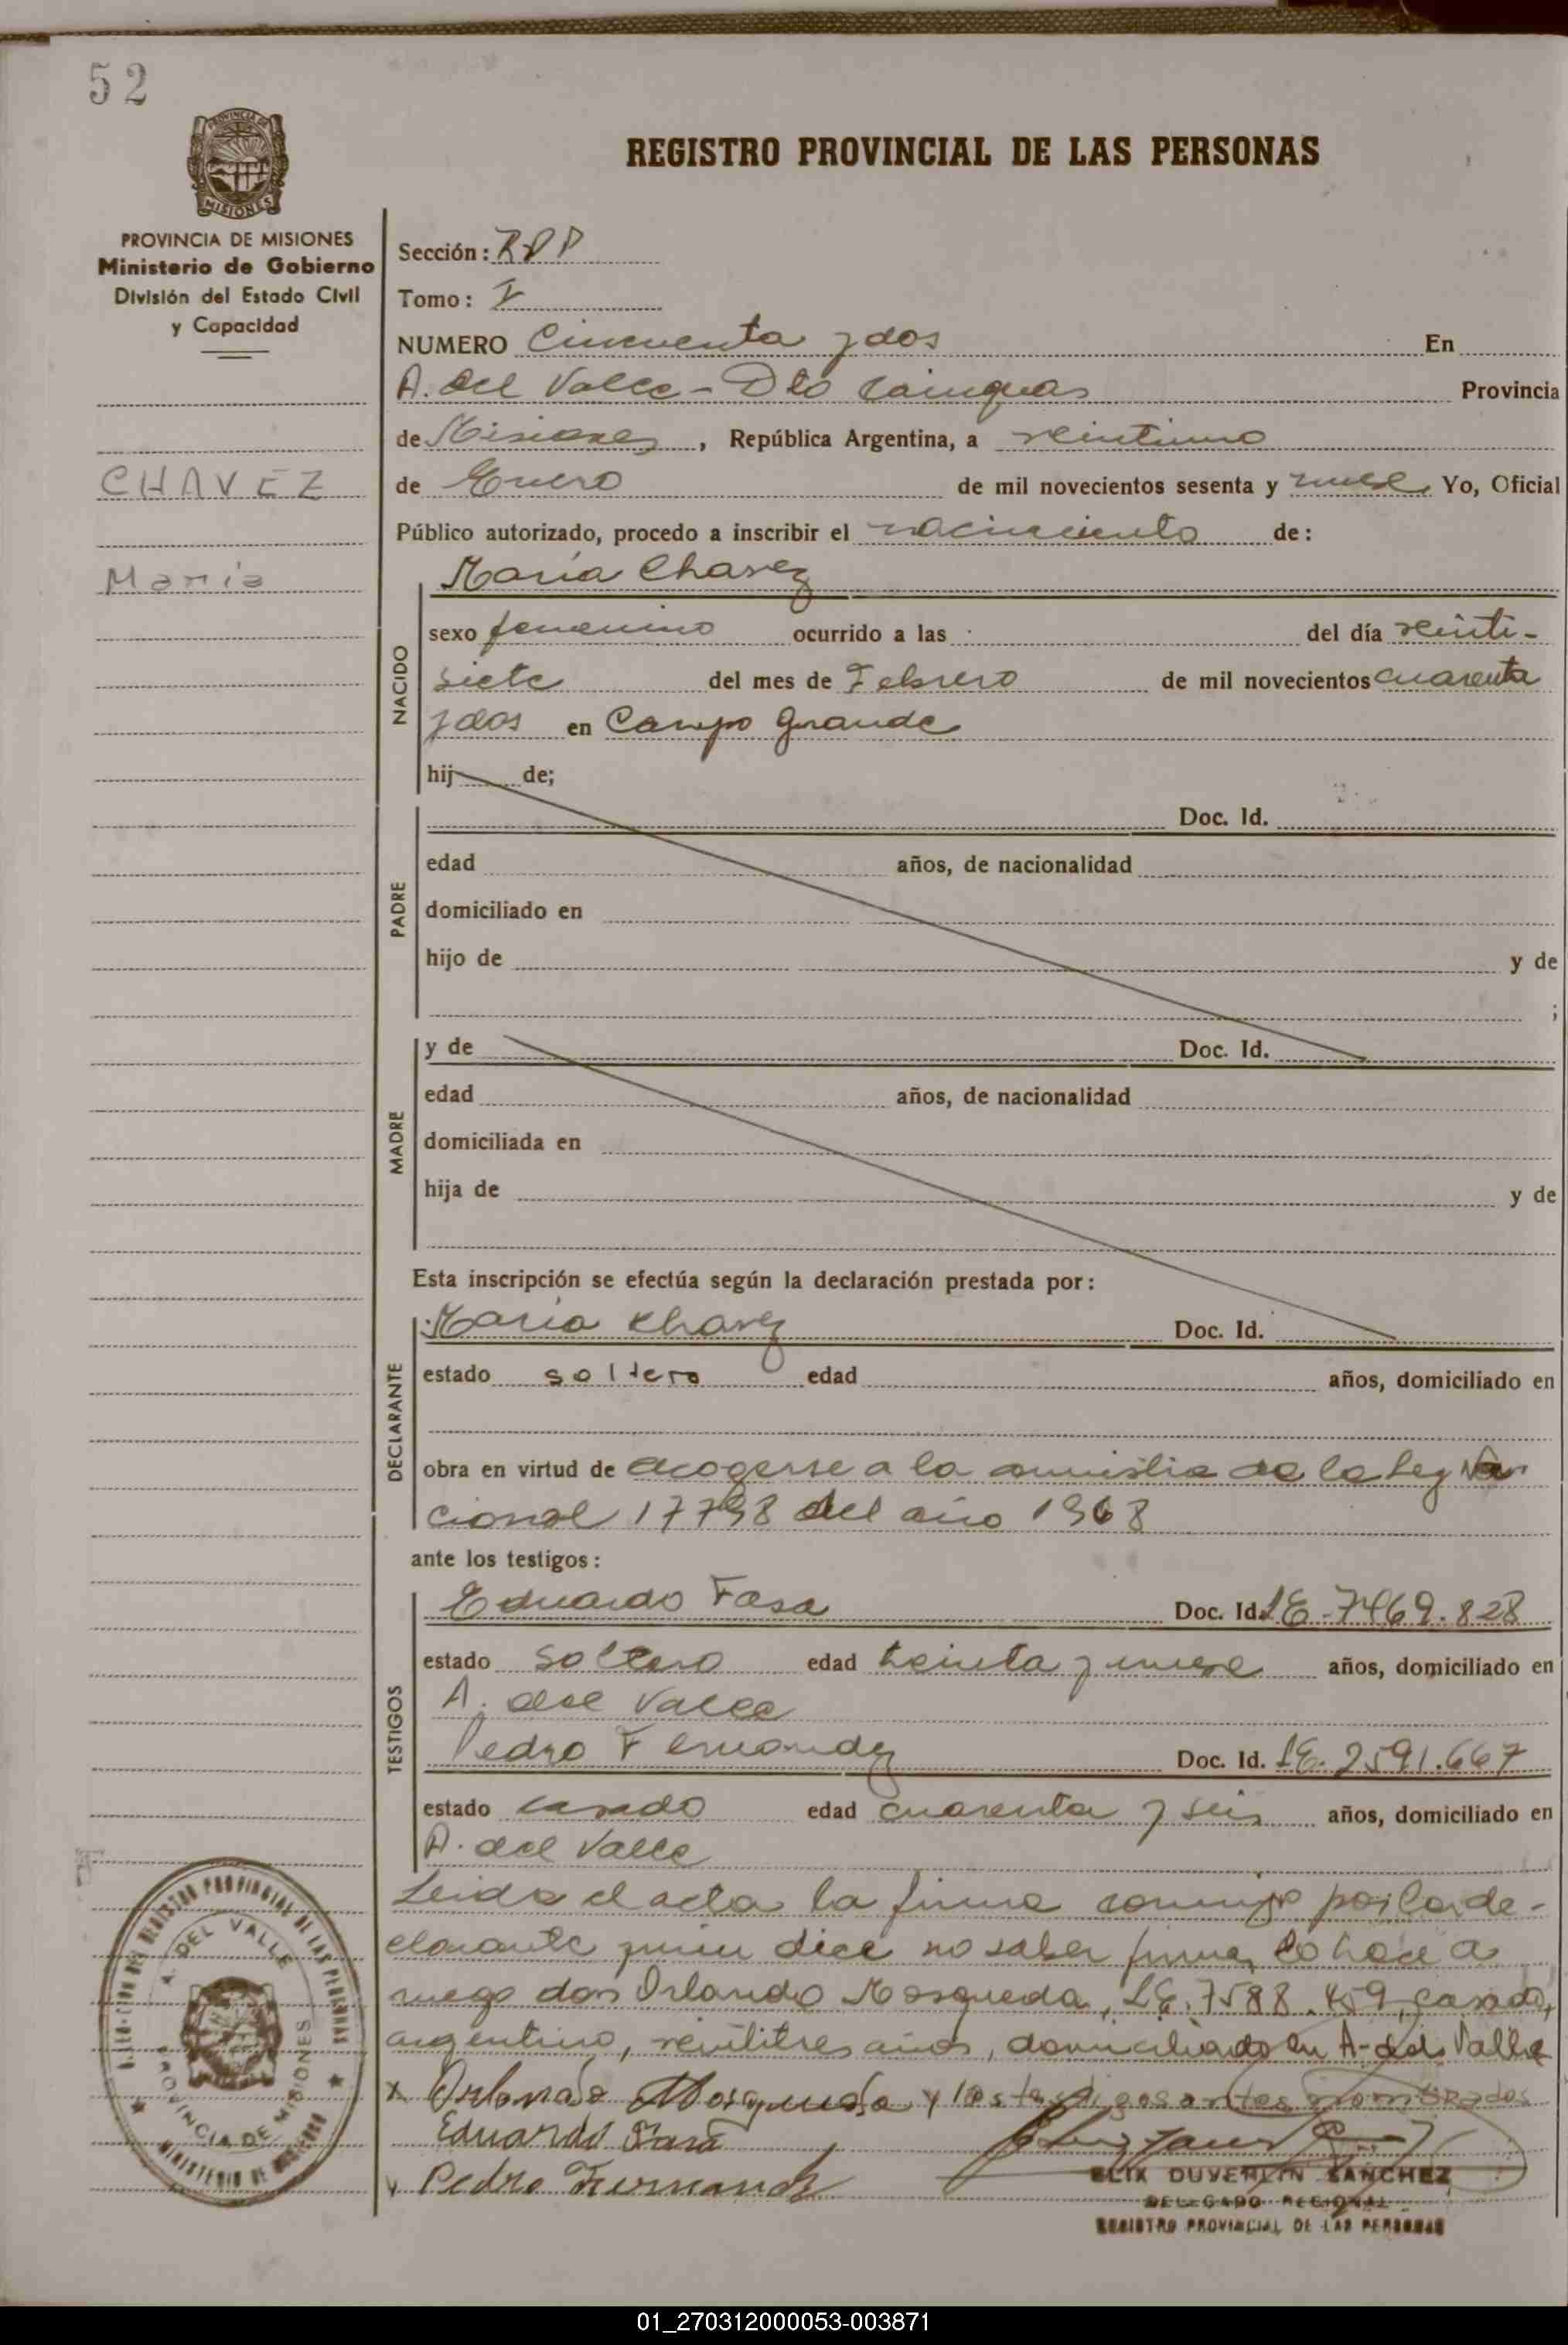 52
REGISTRO PROVINCIAL DE LAS PERSONAS
PROVINCIA DE
MISIONES
PROVINCIA DE MISIONES
Ministerio de Gobierno
División del Estado Civil
y Capacidad
CHAVEZ
María
Sección: RPP
Tomo: I
NUMERO Cincuenta y dos En
A. del Valle - Dto Cainguas Provincia
de Misiones, República Argentina, a veintiuno
de Enero de mil novecientos sesenta y nueve Yo, Oficial
Público autorizado, procedo a inscribir el nacimiento de:
NACIDO
María Chavez
sexo femenino ocurrido a las del día veinti-
siete del mes de Febrero de mil novecientos cuarenta
y dos en Campo Grande
hij de;
PADRE
Doc. Id.
edad años, de nacionalidad
domiciliado en
hijo de y de
;
MADRE
y de Doc. Id.
edad años, de nacionalidad
domiciliada en
hija de y de
Esta inscripción se efectúa según la declaración prestada por:
DECLARANTE
María Chavez Doc. Id.
estado soltero edad años, domiciliado en
obra en virtud de acogerse a la amnistia de la Ley Na
cional 17798 del año 1968
ante los testigos:
TESTIGOS
Eduardo Fasa Doc. Id. LE-7469.828
estado soltero edad treinta y nueve años, domiciliado en
A. del Valle
Pedro Fernandez Doc. Id. LE. 2591.667
estado casado edad cuarenta y seis años, domiciliado en
A. del Valle
Leida el acta la firma conmigo por la de-
clarante quien dice no saber firmar, lo hace a
ruego don Orlando Mosqueda, LE. 7588.459, casado,
argentino, veintitres años, domiciliado en A. del Valle
x Orlando Mosqueda y los testigos antes nombrados
Eduardo Fasa
y Pedro Fernandez
ELIX DUVERLIN SANCHEZ
DELEGADO REGIONAL
REGISTRO PROVINCIAL DE LAS PERSONAS
REGISTRO PROVINCIAL DE LAS PERSONAS
A. DEL VALLE
PROVINCIA DE MISIONES
MINISTERIO DE GOBIERNO
01_270312000053-003871